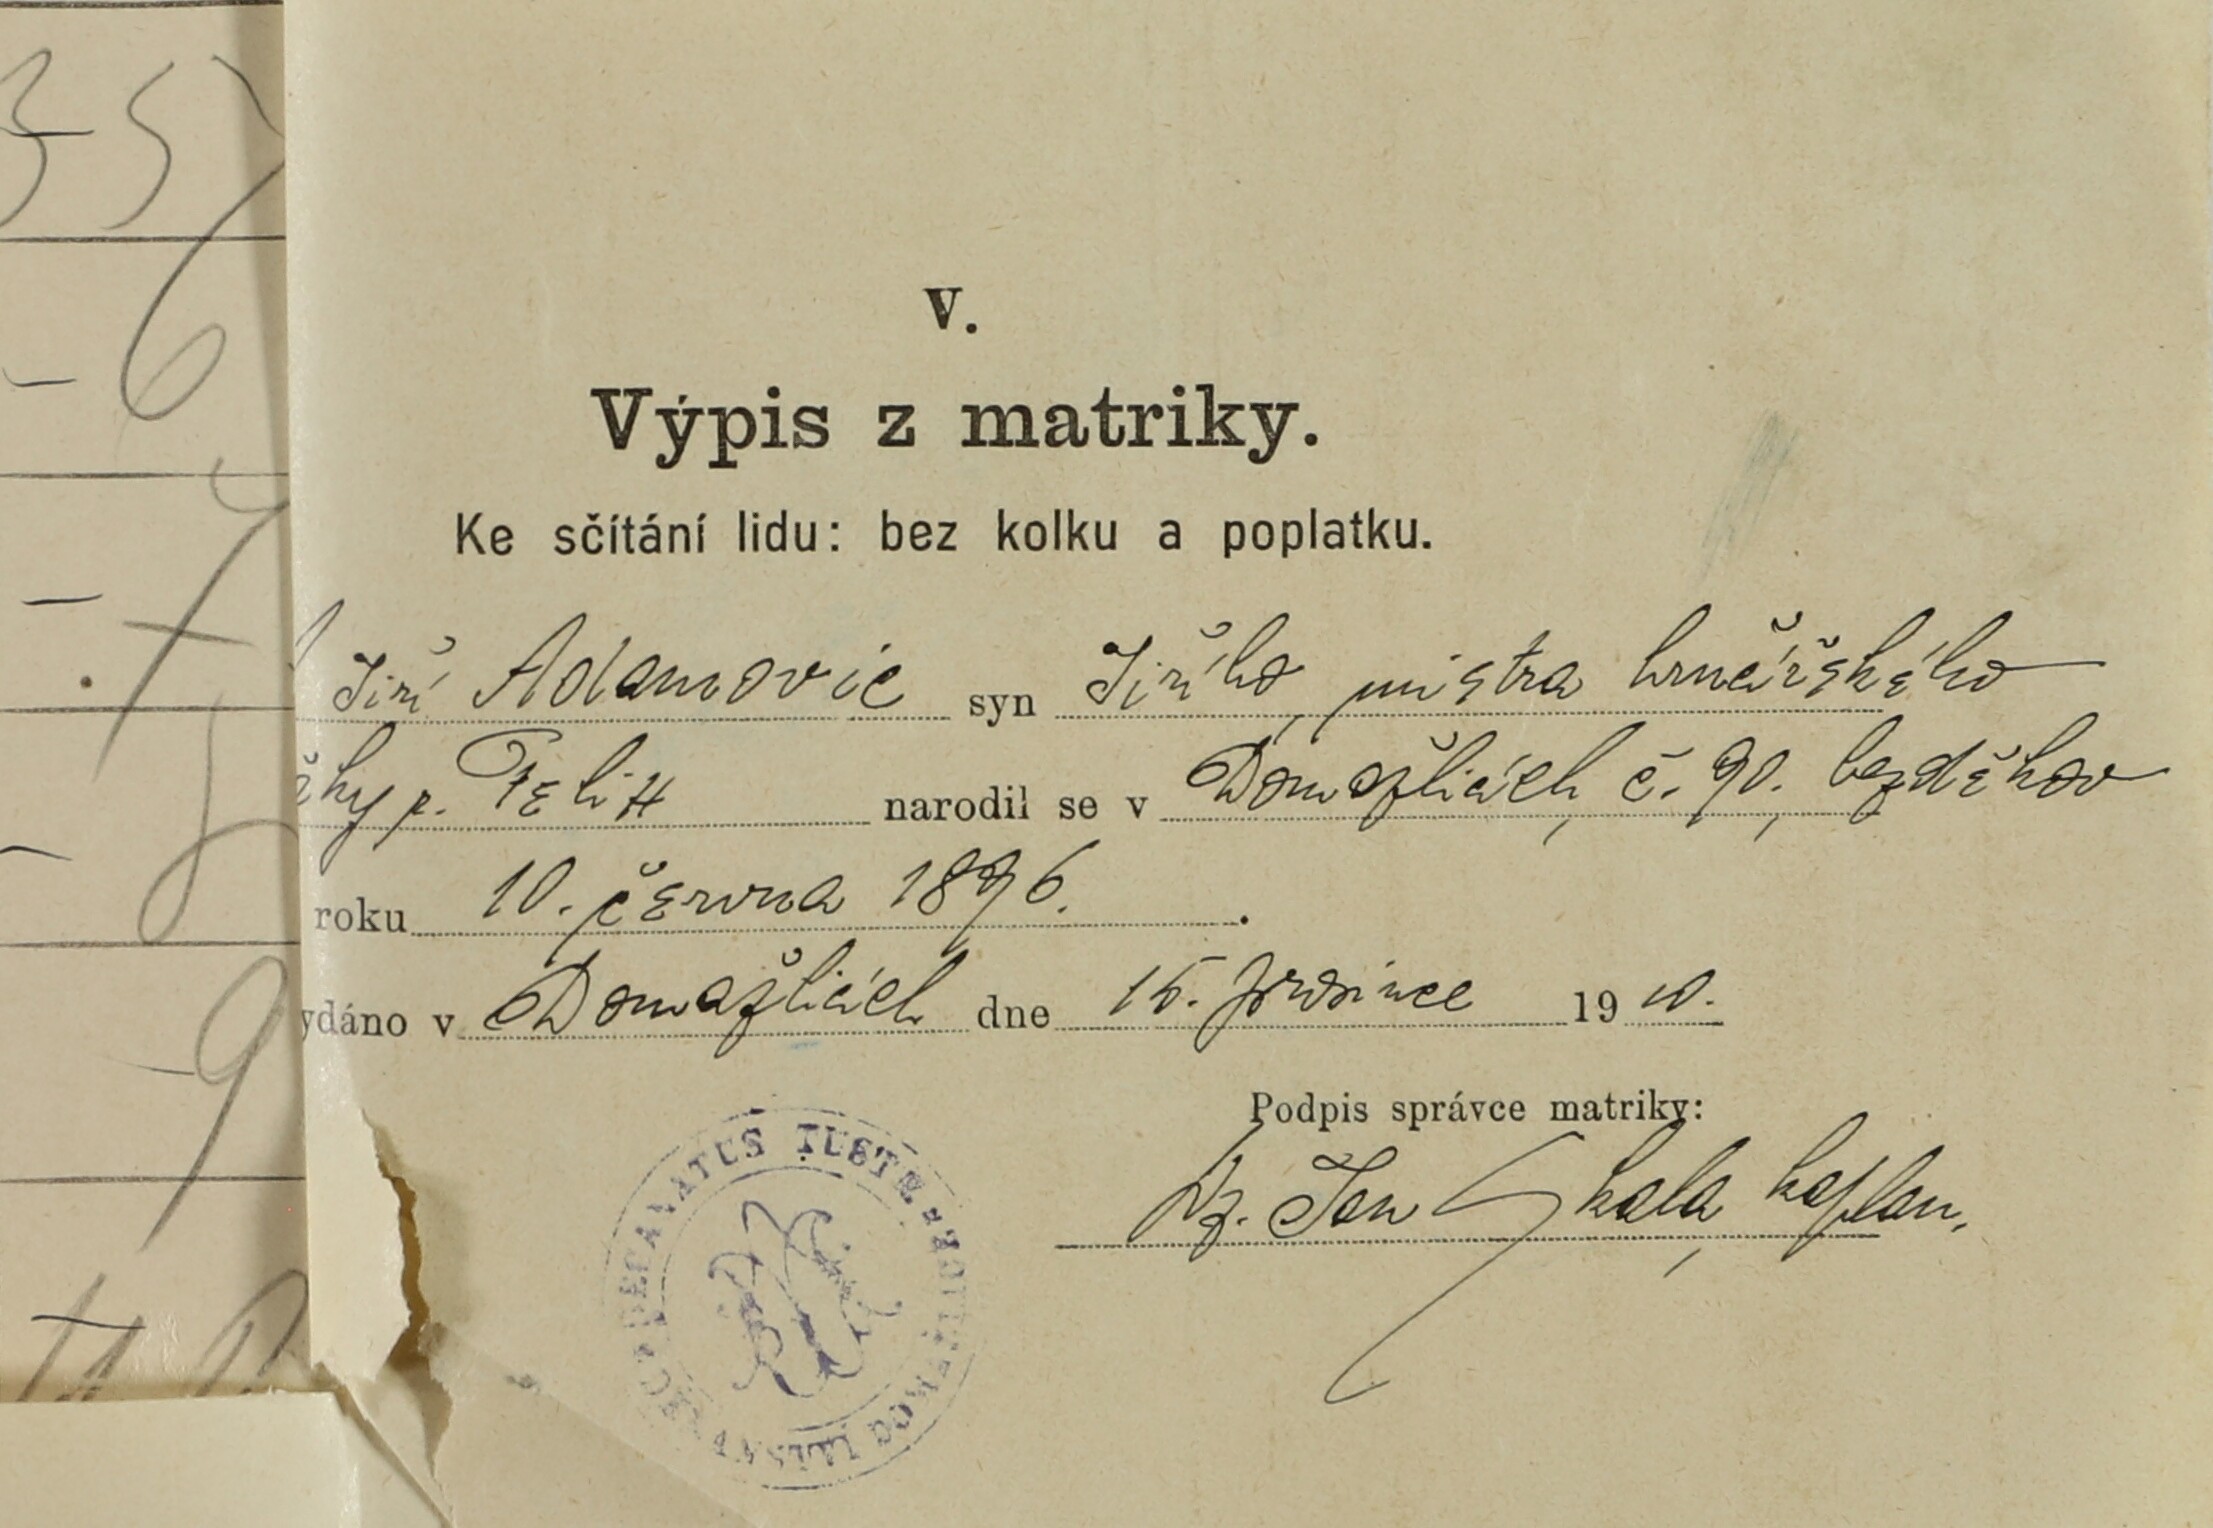 V.
Výpis z matriky.
Ke sčítání lidu: bez kolku a poplatku.
Jiří Adamovic syn Jiřího, mistra hrnčířského
p. narodil se v Domažlicích, č. 90, bezděkov
roku 10. června 1896.
ydáno v Domažlicích dne 15. prosince 19 10.
Podpis správce matriky:
Jan Skala, kaplan.
DECANATUS
35
6
7
9